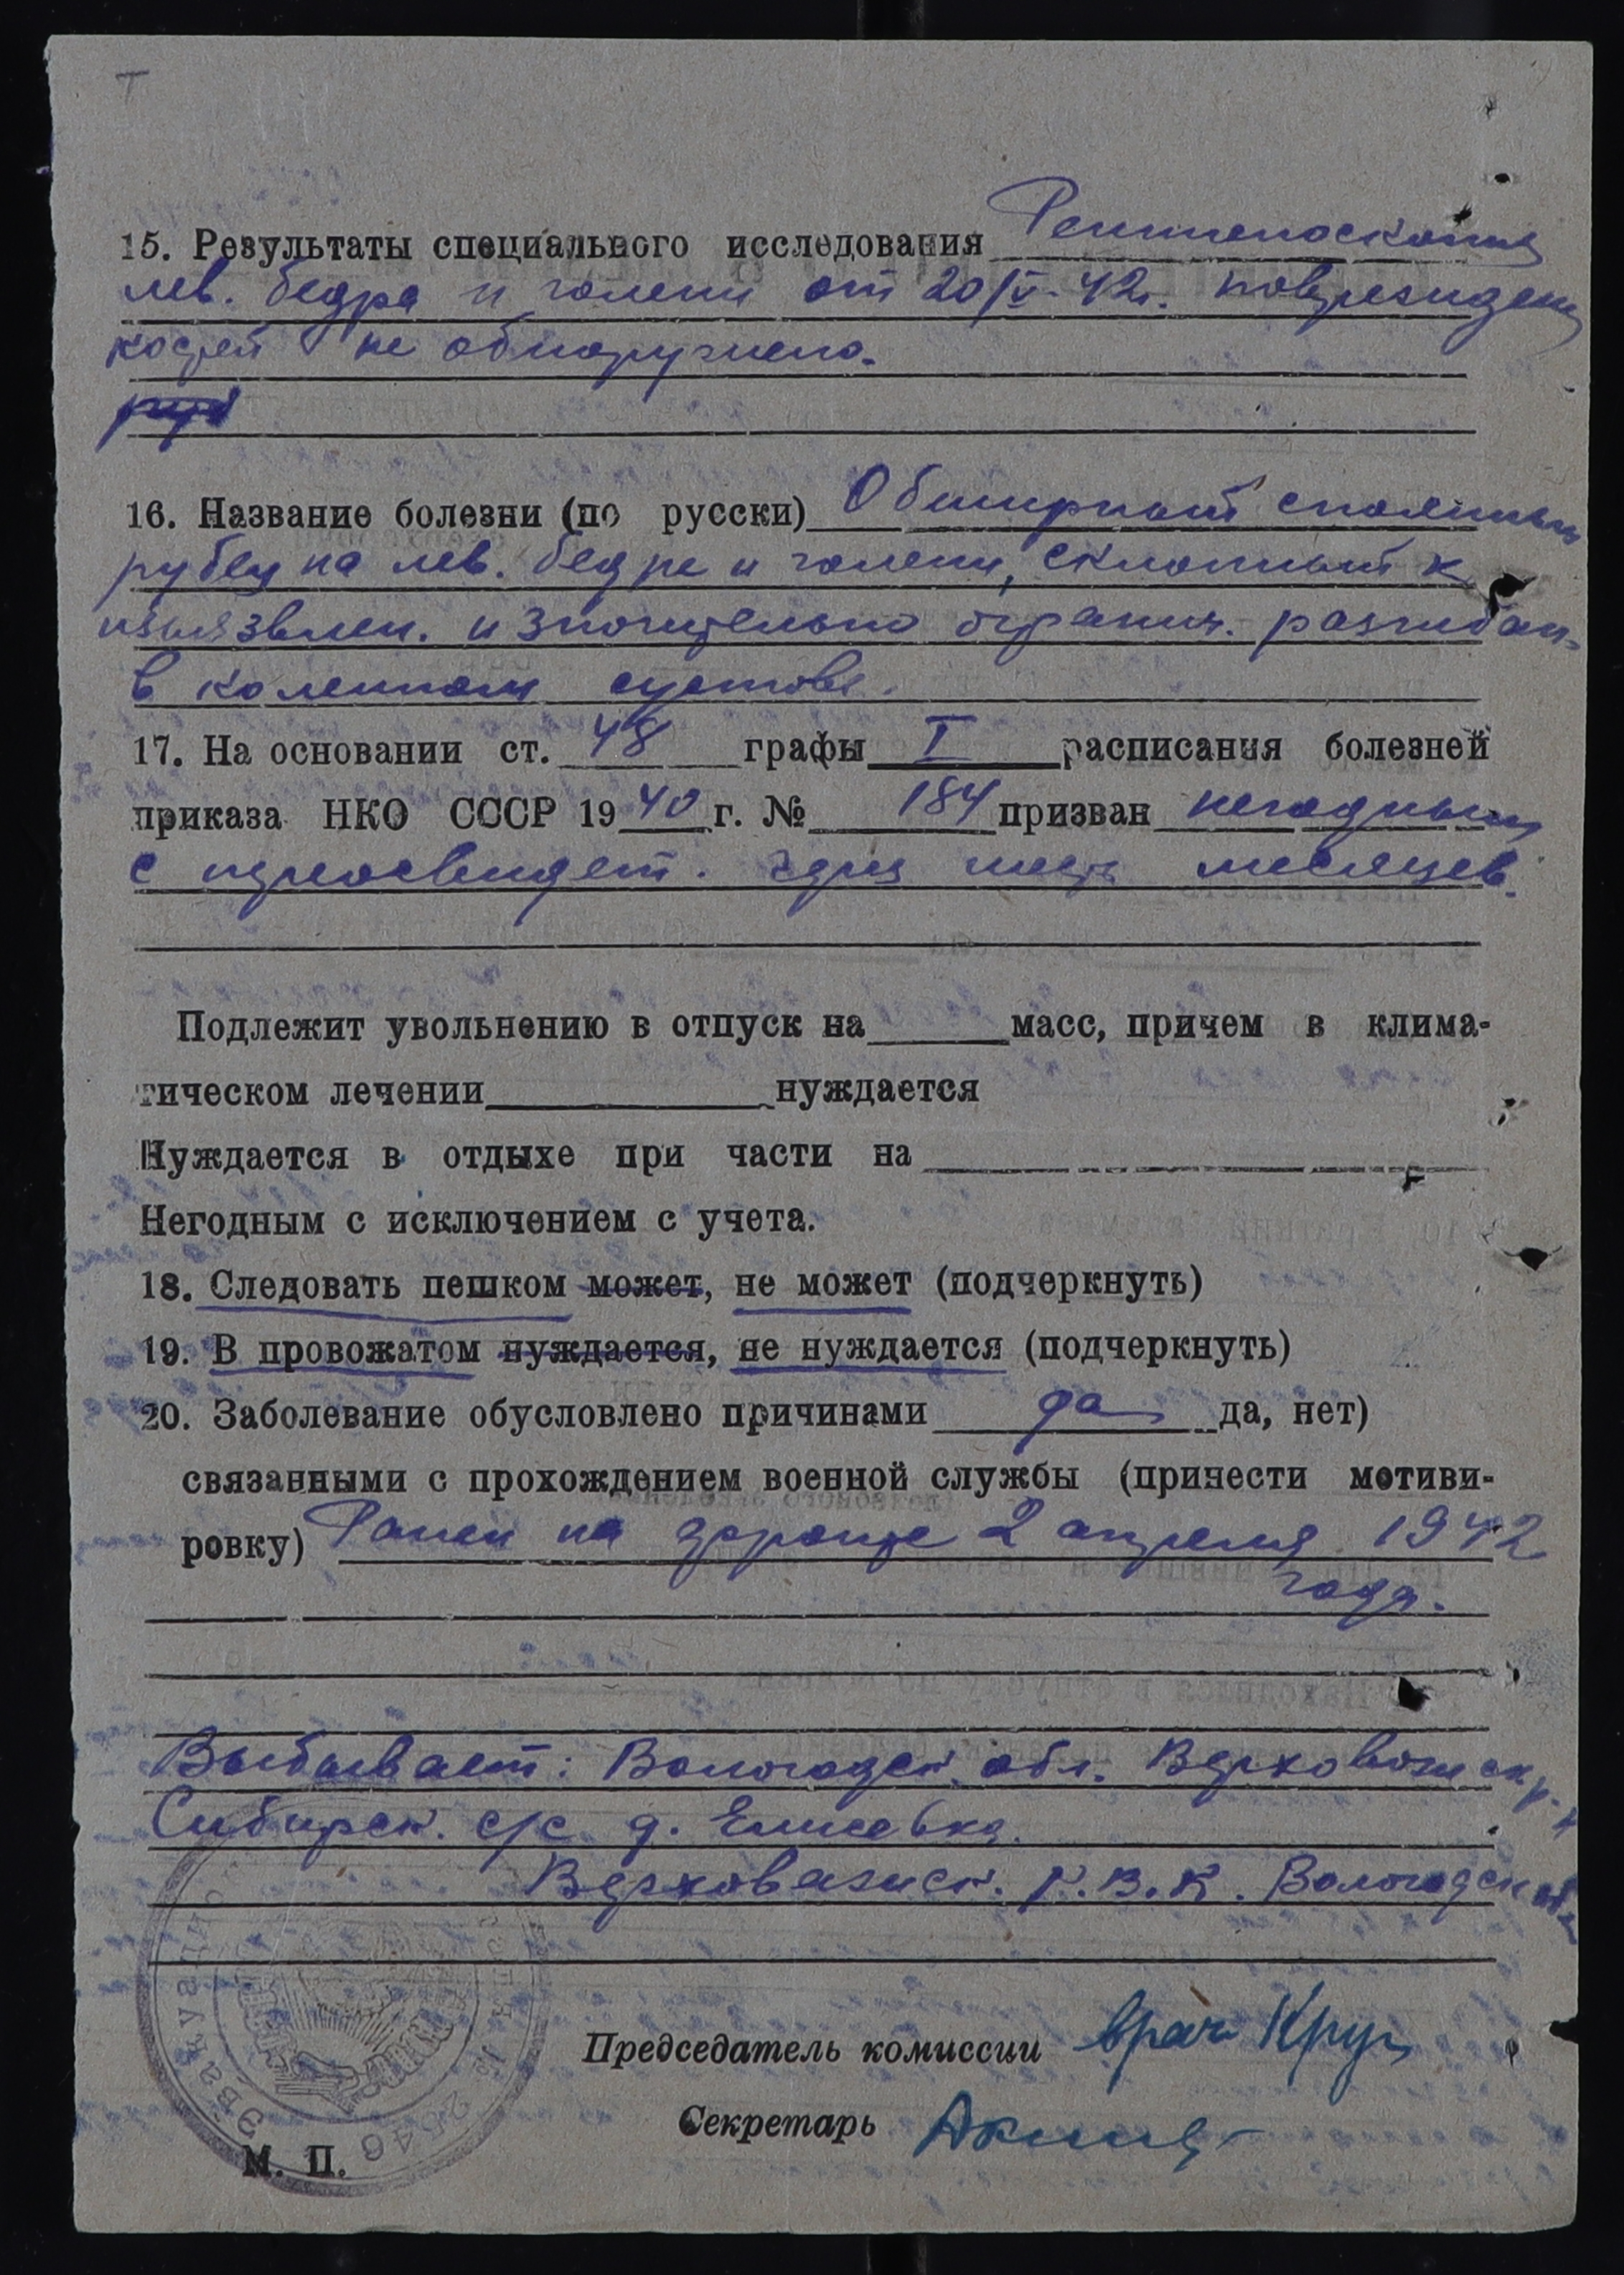 Т
15. Результаты специального исследования Рентгеноскопия
лев. бедра и голени от 20/V-42г. повреждени
костей не обнаружено.
16. Название болезни (по русски) Обширный спаянный
рубец на лев. бедре и голени, склонный к
изъязвлен. и значительно огранич. разгибан.
в коленном суставе.
17. На основании ст. 48 графы I расписания болезней
приказа НКО СССР 1940 г. № 184 призван негодным
с переосвидет. через шесть месяцев.
Подлежит увольнению в отпуск на масс, причем в клима-
тическом лечении нуждается
Нуждается в отдыхе при части на
Негодным с исключением с учета.
18. Следовать пешком может, не может (подчеркнуть)
19. В провожатом нуждается, не нуждается (подчеркнуть)
20. Заболевание обусловлено причинами да да, нет)
связанными с прохождением военной службы (принести мотиви-
ровку) Ранен на фронте 2 апреля 1942
года.
Выбывает: Вологодск. обл. Верховажск р-н
Сибирск. с/с д. Елисеевка.
Верховажск. Р.В.К. Вологодск обл
Председатель комиссии врач Круг
Секретарь
М. П.
Эвакуаци № 2546